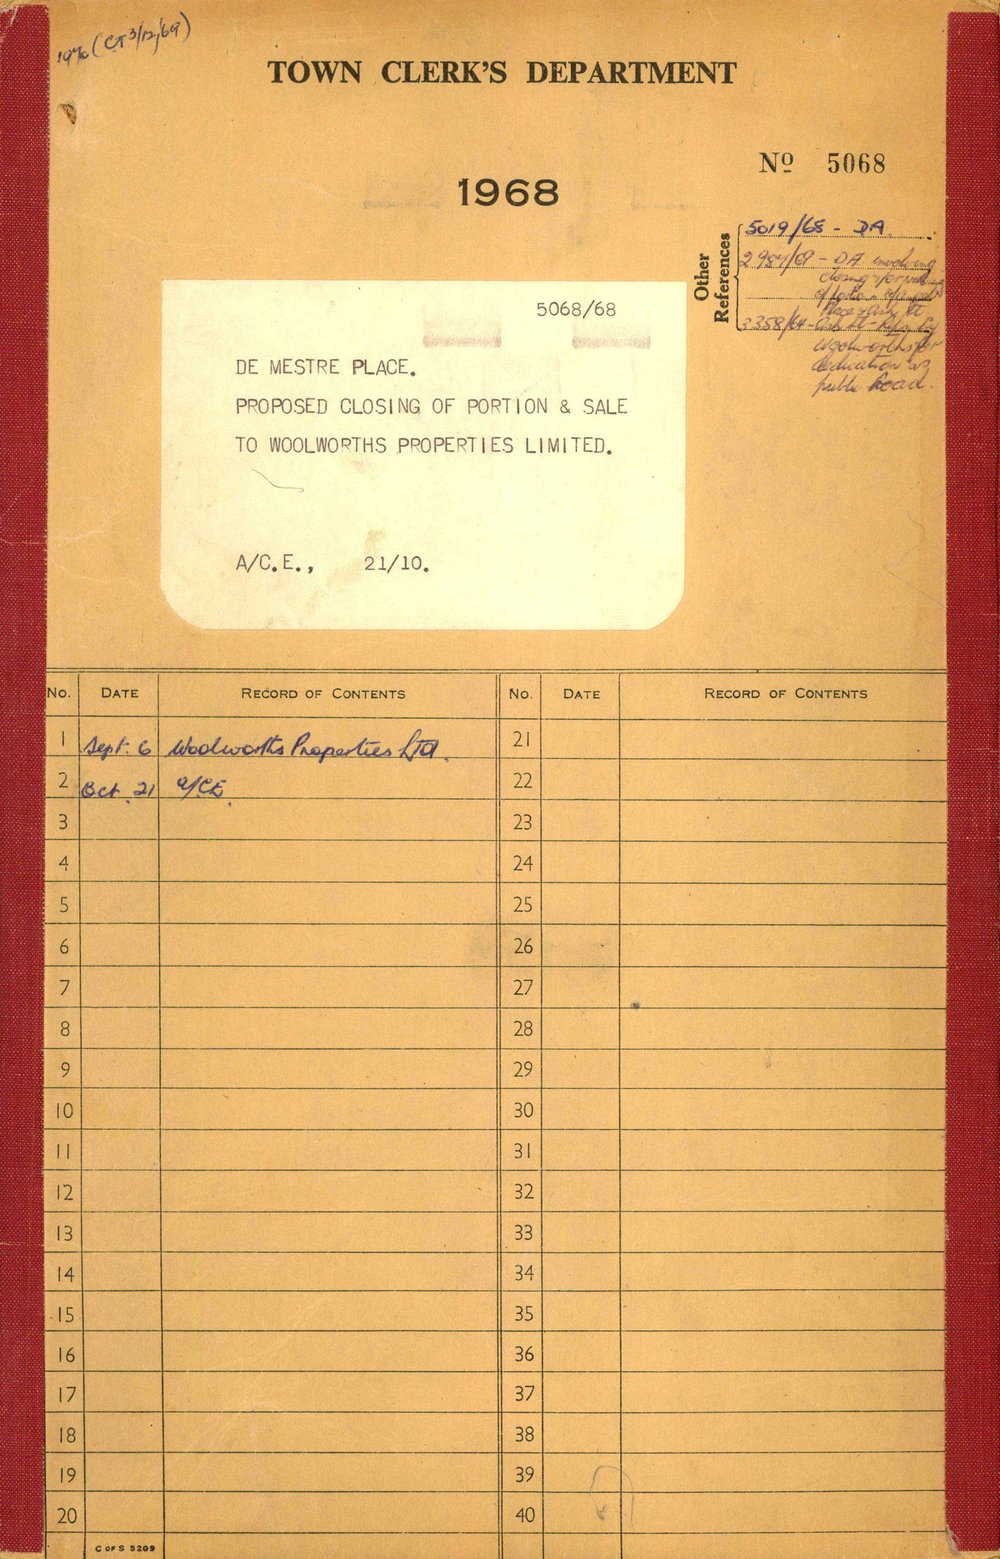 1970 (CT 3/12/69)
TOWN CLERK'S DEPARTMENT
Nº 5068
1968
Other References
5019/68 - DA.
2987/69 - DA involving
closing
Place
3358/64 -
Woolworths for
dedication as
public road.
5068/68
DE MESTRE PLACE.
PROPOSED CLOSING OF PORTION & SALE
TO WOOLWORTHS PROPERTIES LIMITED.
A/C.E., 21/10.
No. DATE RECORD OF CONTENTS No. DATE RECORD OF CONTENTS
1 Sept. 6 Woolworths Properties Ltd. 21
2 Oct. 21 A/CE. 22
3 23
4 24
5 25
6 26
7 27
8 28
9 29
10 30
11 31
12 32
13 33
14 34
15 35
16 36
17 37
18 38
19 39
20 40
C OF S 5209